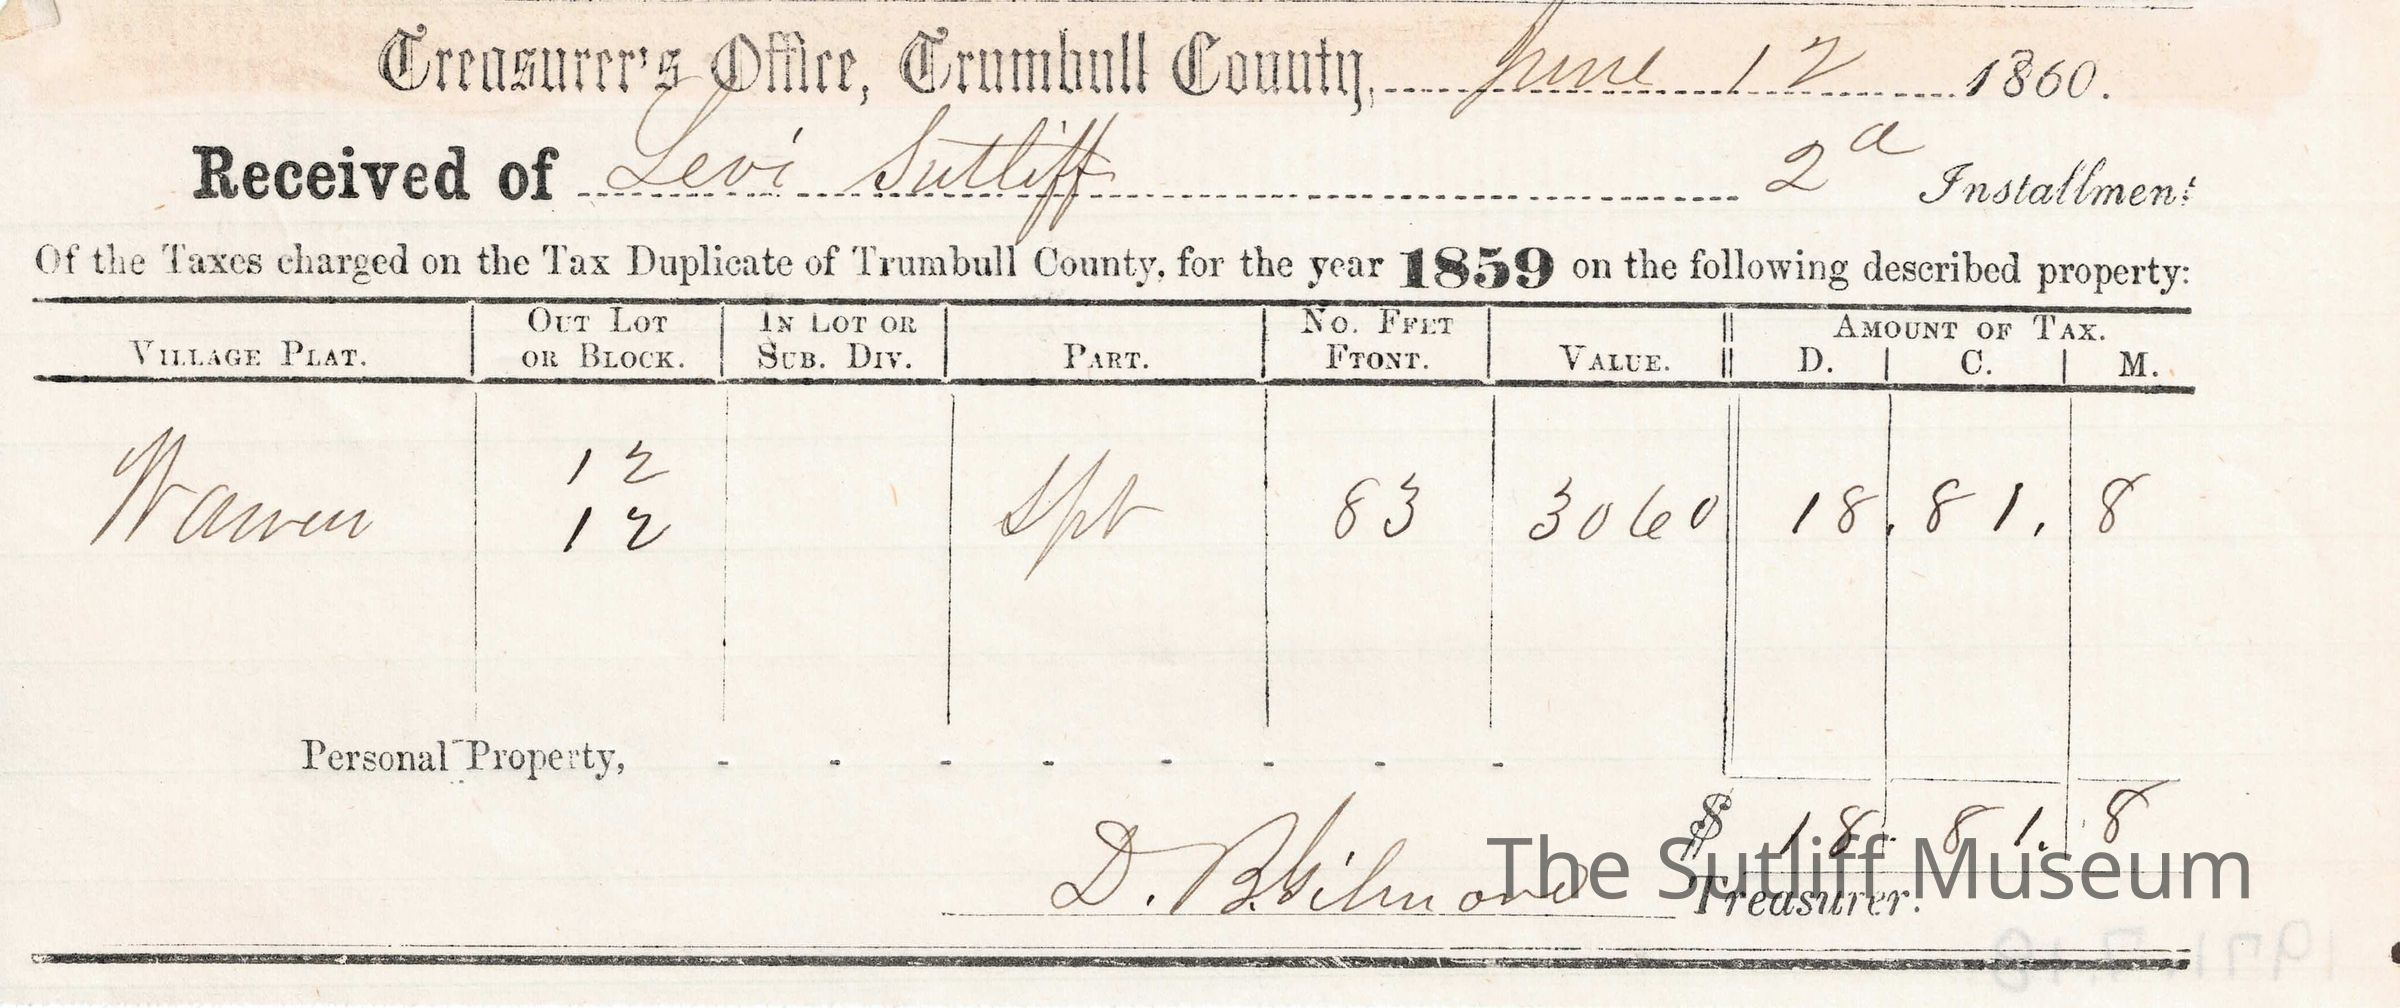 Treasurer's Office, Trumbull County, June 12 1860.
Received of Levi Sutliff 2d Installment
Of the Taxes charged on the Tax Duplicate of Trumbull County, for the year 1859 on the following described property:
VILLAGE PLAT. OUT LOT OR BLOCK. IN LOT OR SUB. DIV. PART. NO. FEET FTONT. VALUE. AMOUNT OF TAX. D. C. M.
12
Warren 12 Spt 83 3060 18. 81. 8
Personal Property, - - - - - - - -
$ 18. 81. 8
D. B. Gilmore Treasurer.
The Sutliff Museum